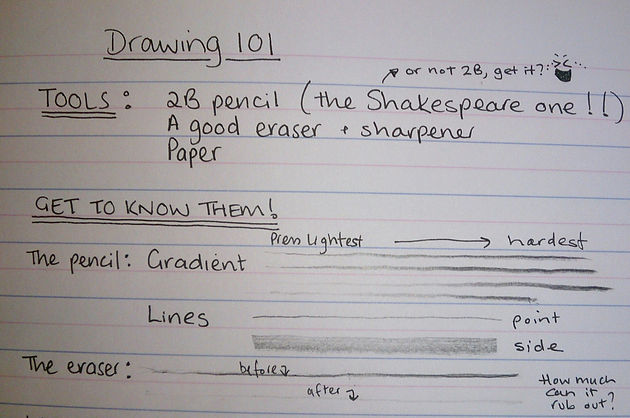 Drawing 101
or not 2B, get it?
TOOLS: 2B pencil (the Shakespeare one!!)
A good eraser + sharpener
Paper
GET TO KNOW THEM!
Press lightest → hardest
The pencil: Gradient
Lines point
side
The eraser: before
after
How much
can it
rub out?